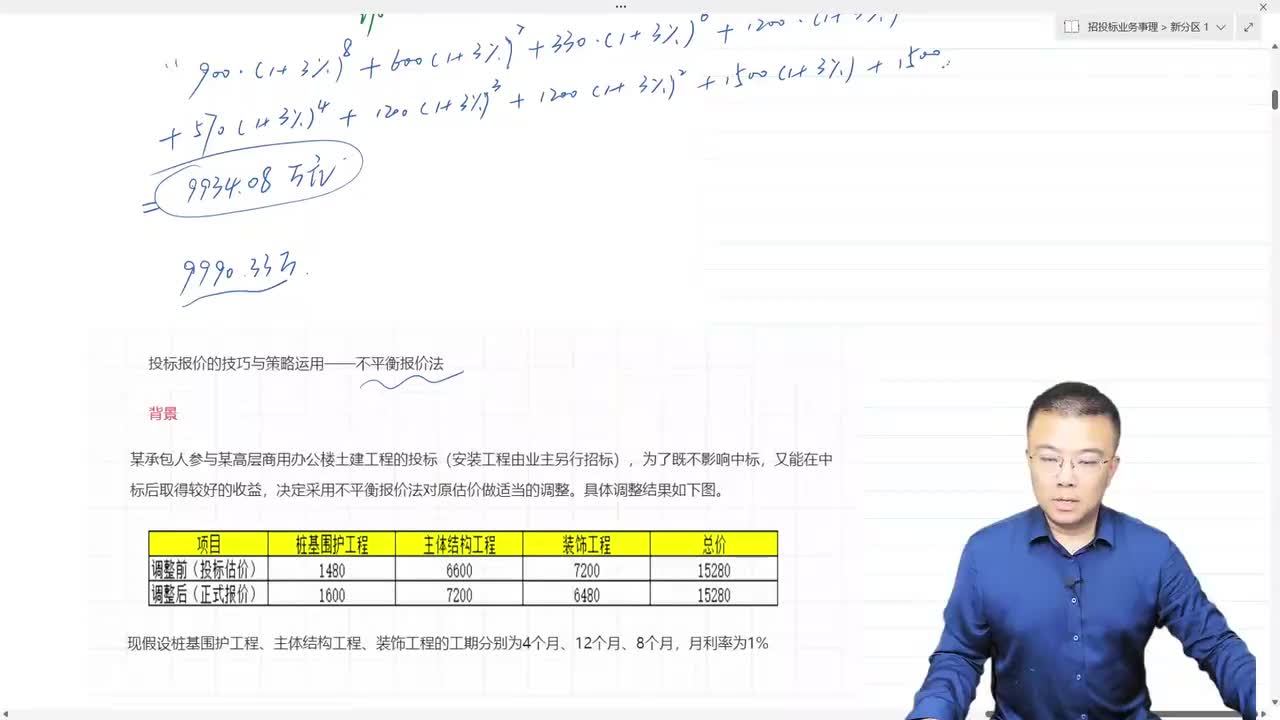 招投标业务事理 > 新分区 1
900·(1+3%)^8 + 600(1+3%)^7 + 330·(1+3%)^6 + 1200·(1+3%)
+ 570(1+3%)^4 + 1200(1+3%)^3 + 1200(1+3%)^2 + 1500(1+3%) + 1500
= 9934.08 万元
9990.33万.
投标报价的技巧与策略运用——不平衡报价法
背景
某承包人参与某高层商用办公楼土建工程的投标（安装工程由业主另行招标），为了既不影响中标，又能在中
标后取得较好的收益，决定采用不平衡报价法对原估价做适当的调整。具体调整结果如下图。
项目 桩基围护工程 主体结构工程 装饰工程 总价
调整前（投标估价） 1480 6600 7200 15280
调整后（正式报价） 1600 7200 6480 15280
现假设桩基围护工程、主体结构工程、装饰工程的工期分别为4个月、12个月、8个月，月利率为1%